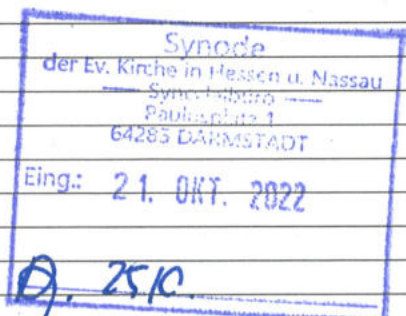 Synode
der Ev. Kirche in Hessen u. Nassau
Synodalbüro
Paulusplatz 1
64283 DARMSTADT
Eing.: 21. OKT. 2022